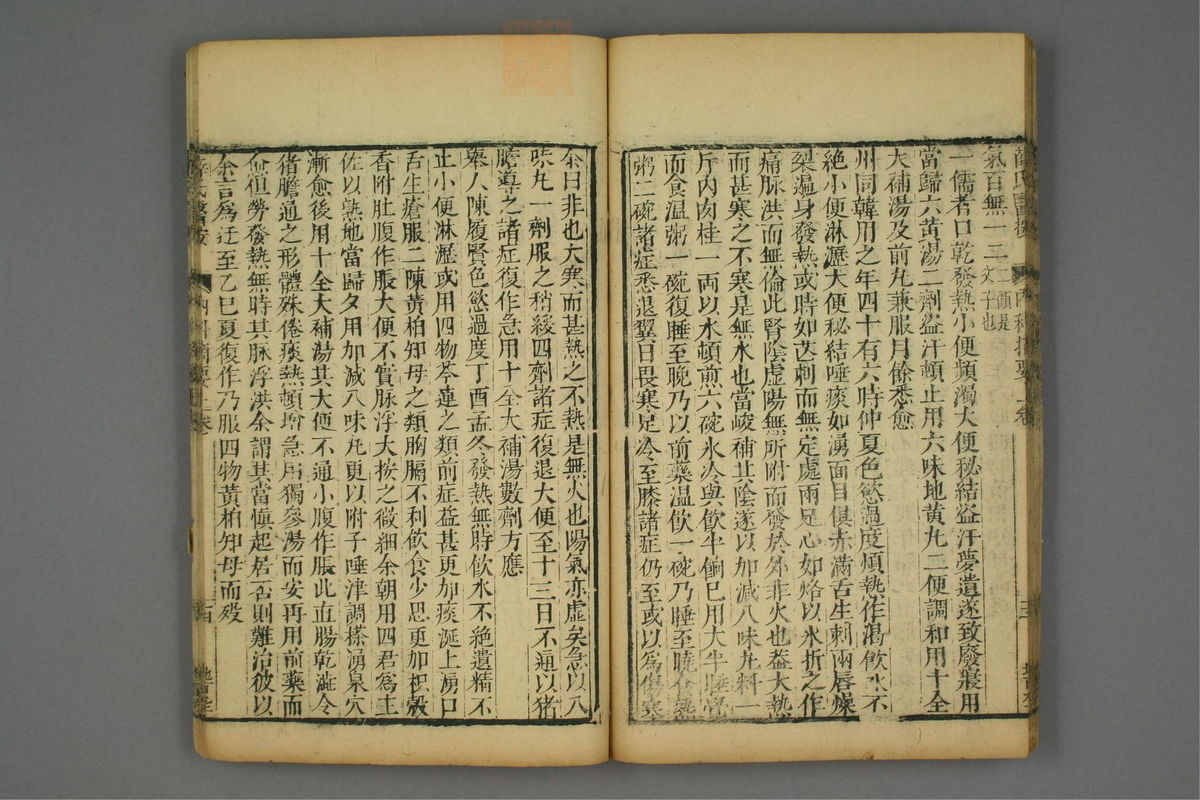 薛氏醫按 內科摘要上卷
氣百無一二 二簡是文子也
一儒者口乾發熱小便頻濁大便秘結盜汗夢遺遂致廢寢用
當歸六黃湯二劑盜汗頓止用六味地黃丸二便調和用十全
大補湯及前丸兼服月餘悉愈
州同韓用之年四十有六時仲夏色慾過度煩熱作渴飲水不
絕小便淋瀝大便秘結唾痰如湧面目俱赤滿舌生刺兩唇燥
裂遍身發熱或時如芒刺而無定處兩足心如烙以氷折之作
痛脉洪而無倫此腎陰虛陽無所附而發於外非火也葢大熱
而甚寒之不寒是無水也當峻補其陰遂以加減八味丸料一
斤內肉桂一兩以水頓煎六碗氷冷與飲半餉已用大半睡覺
而食溫粥一碗復睡至晚乃以前藥溫飲一碗乃睡至曉食熱
粥二碗諸症悉退翌日畏寒足冷至膝諸症仍至或以爲傷寒
余曰非也大寒而甚熱之不熱是無火也陽氣亦虛矣急以八
味丸一劑服之稍緩四劑諸症復退大便至十三日不通以猪
膽導之諸症復作急用十全大補湯數劑方應
舉人陳履賢色慾過度丁酉孟冬發熱無時飲水不絕遺精不
止小便淋瀝或用四物芩連之類前症益甚更加痰涎上湧口
舌生瘡服二陳黃柏知母之類胸膈不利飲食少思更加枳殼
香附肚腹作脹大便不實脉浮大按之微細余朝用四君爲主
佐以熟地當歸夕用加減八味丸更以附子唾津調搽湧泉穴
漸愈後用十全大補湯其大便不通小腹作脹此直腸乾澁令
猪膽通之形體殊倦痰熱頓增急用獨參湯而安再用前藥而
愈但勞發熱無時其脉浮洪余謂其當慎起居否則難治彼以
余言爲迂至乙巳夏復作乃服四物黃柏知母而歿
薛氏醫按 內科摘要上卷